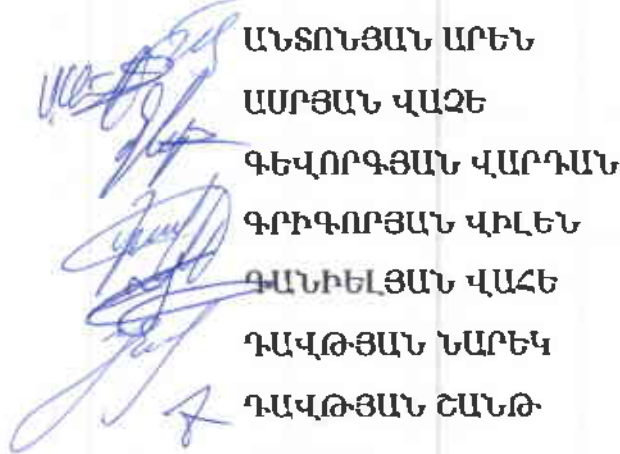 ԱՆՏՈՆՅԱՆ ԱՐԵՆ
ԱՍՐՅԱՆ ՎԱՉԵ
ԳԵՎՈՐԳՅԱՆ ՎԱՐԴԱՆ
ԳՐԻԳՈՐՅԱՆ ՎԻԼԵՆ
ԴԱՆԻԵԼՅԱՆ ՎԱՀԵ
ԴԱՎԹՅԱՆ ՆԱՐԵԿ
ԴԱՎԹՅԱՆ ՇԱՆԹ